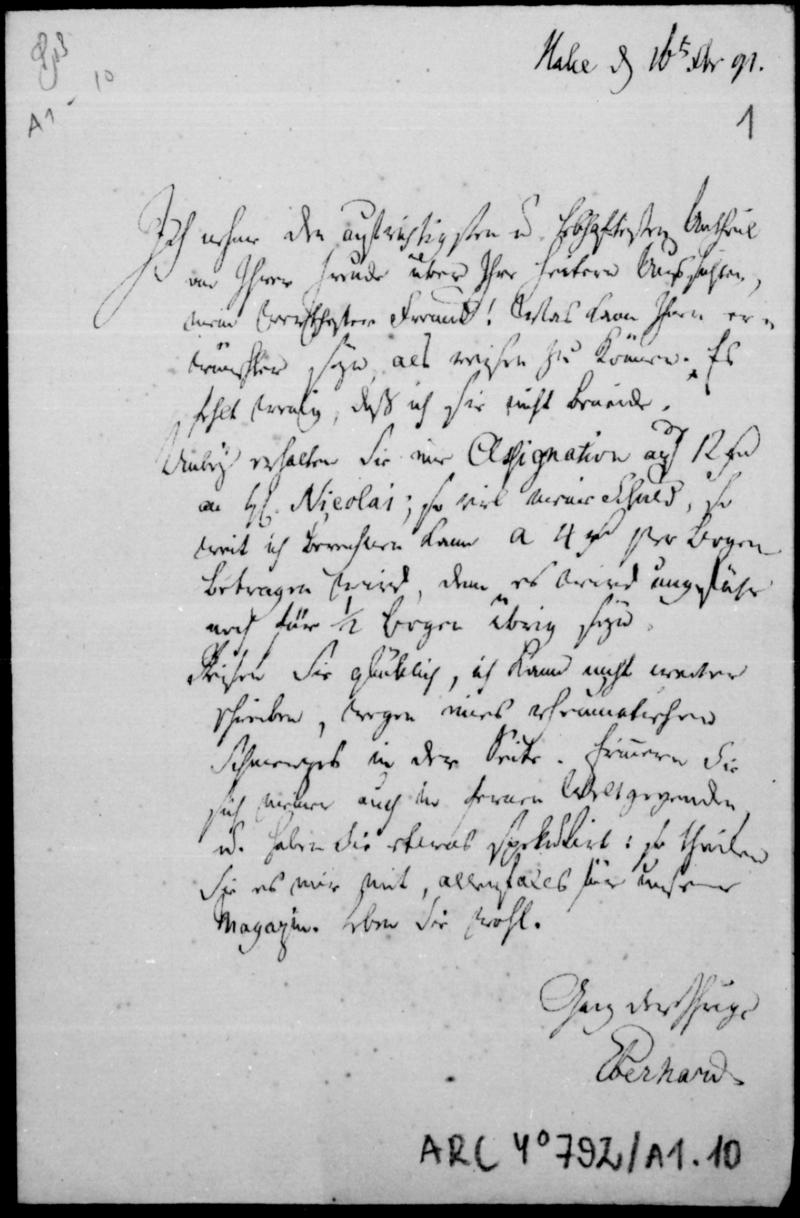 A1-10
Halle d 16ts Xbr 91.
1
Ich nehme den aufrichtigsten u. lebhaftesten Antheil
an Ihrer Freude über Ihre heitern Aussichten,
mein werthester Freund! Was kann Ihnen er-
wünschter seyn, als reisen zu können. Es
fehlt wenig, daß ich Sie nicht beneide.
Anbey erhalten Sie eine Assignation auf 12 rh
an H. Nicolai; so viel meine Schuld, so
weit ich berechnen kann a 4 rh per Bogen
betragen wird, denn es wird ungefähr
noch für 1/2 Bogen übrig seyn.
Reisen Sie glücklich, ich kann nicht weiter
schreiben, wegen eines rheumatischen
Schmerzes in der Seite. Erinnern Sie
sich meiner auch in fernen Weltgegenden,
u. haben Sie etwas spekulirt: so theilen
Sie es mir mit, allenfalls für unser
Magazin. Leben Sie wohl.
Ganz der Ihrige
Eberhard
ARC 4° 792/A1.10